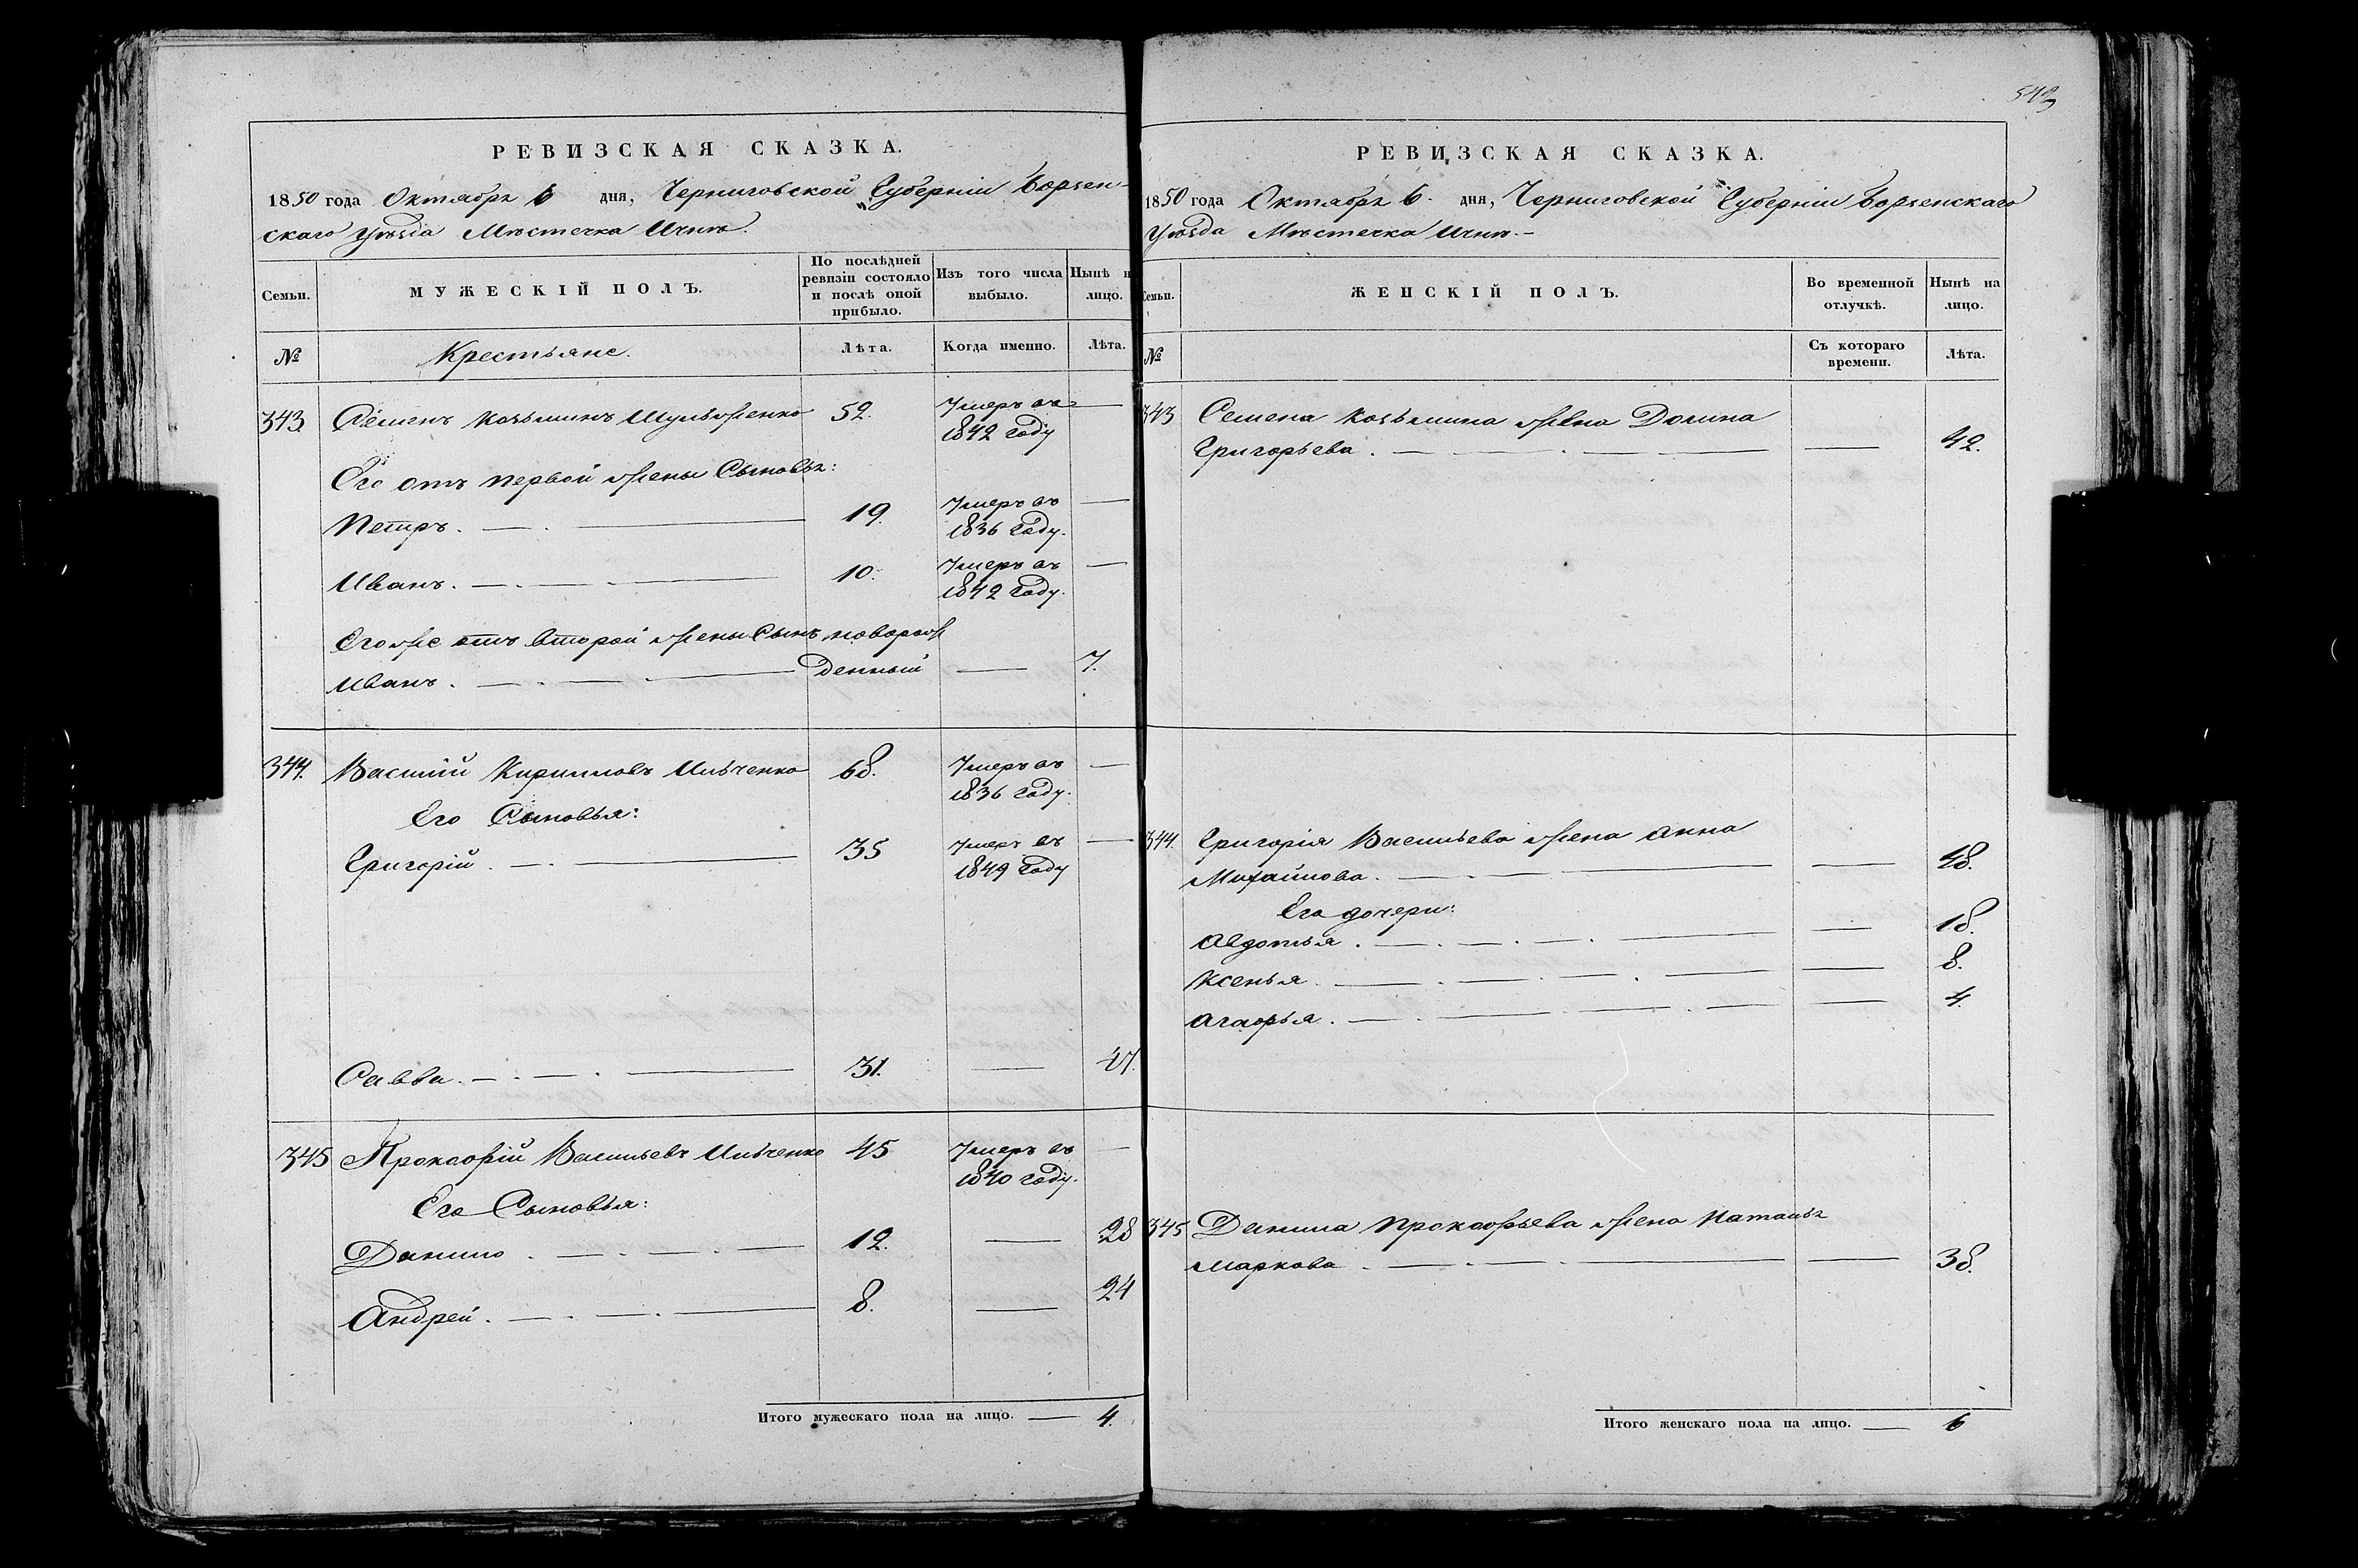 РЕВИЗСКАЯ СКАЗКА.
1850 года Октября 6 дня, Черниговской Губерніи Борзен-
скаго Уѣзда Мѣстечка Ични.
Семьи.
МУЖЕСКІЙ ПОЛЪ.
По послѣдней ревизіи состояло и послѣ оной прибыло.
Изъ того числа выбыло.
Нынѣ н
лицо.
№
Крестьяне.
Лѣта.
Когда именно.
Лѣта.
343 Семенъ Козьминъ 52. Умеръ въ —
1842 году
Его отъ первой жены Сыновья:
Петръ. 19. Умеръ въ —
1836 году.
Иванъ. 10. Умеръ въ —
1842 году.
Его же отъ второй жены Сынъ новорож
Иванъ. денный — 7.
344. Василій Кирилловъ Ильченко 68. Умеръ въ —
1836 году.
Его Сыновья:
Григорій. 35 Умеръ въ —
1849 году
Савва. 31. — 47.
345 Прокофій Васильевъ Ильченко 45 Умеръ въ —
1840 году.
Его Сыновья:
Данило. 12. — 28
Андрей. 8. — 24
Итого мужескаго пола на лицо. — 4.
542
РЕВИЗСКАЯ СКАЗКА.
1850 года Октября 6. дня, Черниговской Губерніи Борзенскаго
Уѣзда Мѣстечка Ични.—
Семьи.
ЖЕНСКІЙ ПОЛЪ.
Во временной отлучкѣ.
Нынѣ на лицо.
№
Съ котораго времени.
Лѣта.
343 Семена Козьмина жена Домна
Григорьева. — 42.
344. Григорія Васильева жена Анна
Михайлова. — 48.
Его дочери:
Авдотья. — 18.
Ксенья. — 8.
Агафья. — 4.
345 Данила Прокофьева жена Наталья
Маркова. — 38.
Итого женскаго пола на лицо. — 6